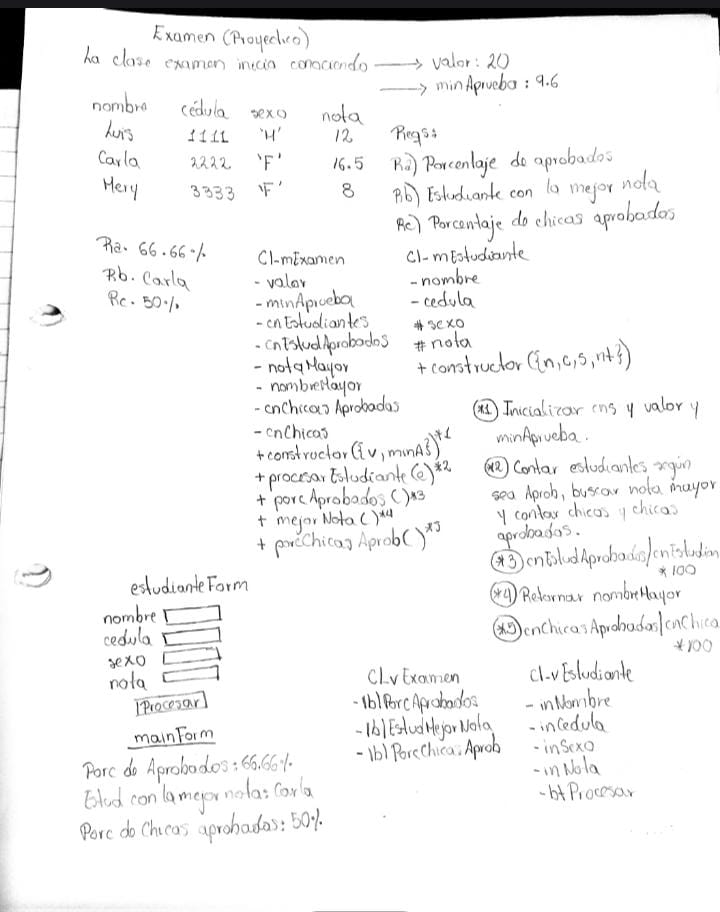 Examen (Proyectico)
La clase examen inicia conociendo → valor: 20
→ minAprueba: 9.6
nombre cédula sexo nota
Luis 1111 'M' 12
Carla 2222 'F' 16.5
Mery 3333 'F' 8
Reqs:
Ra) Porcentaje de aprobados
Rb) Estudiante con la mejor nota
Rc) Porcentaje de chicas aprobados
Ra. 66.66%
Rb. Carla
Rc. 50%
Cl-mExamen
- valor
- minAprueba
- cnEstudiantes
- cnEstudAprobados
- notaMayor
- nombreMayor
- cnChicasAprobadas
- cnChicas
+ constructor({v, minA})*1
+ procesarEstudiante(e)*2
+ porcAprobados()*3
+ mejorNota()*4
+ porcChicasAprob()*5
Cl-mEstudiante
- nombre
- cedula
# sexo
# nota
+ constructor({n,c,s,nt})
*1 Inicializar cns y valor y
minAprueba.
*2 Contar estudiantes según
sea Aprob, buscar nota mayor
y contar chicas y chicas
aprobadas.
*3 cnEstudAprobados/cnEstudian
*100
*4 Retornar nombreMayor
*5 cnChicasAprobadas/cnChica
*100
estudianteForm
nombre
cedula
sexo
nota
Procesar
mainForm
Porc de Aprobados: 66.66%
Estud con la mejor nota: Carla
Porc de Chicas aprobadas: 50%
Cl-vExamen
- lblPorcAprobados
- lblEstudMejorNota
- lblPorcChicasAprob
Cl-vEstudiante
- inNombre
- inCedula
- inSexo
- inNota
- btProcesar